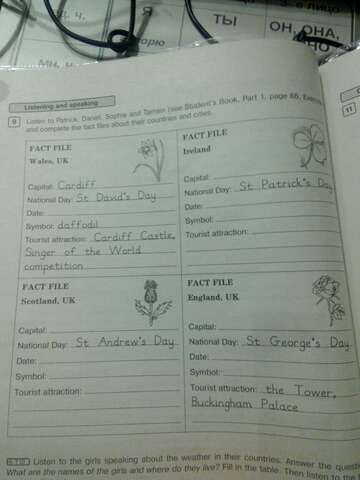 ТЫ
ОН, ОНА,
Listening and speaking
9 Listen to Patrick, Daniel, Sophie and Tamsin (see Student's Book, Part 1, page 66,
and complete the fact files about their countries and cities.
11
FACT FILE
Wales, UK
Capital: Cardiff
National Day: St David's Day
Date:
Symbol: daffodil
Tourist attraction: Cardiff Castle,
Singer of the World
competition
FACT FILE
Ireland
Capital:
National Day: St Patrick's Day
Date:
Symbol:
Tourist attraction:
FACT FILE
Scotland, UK
Capital:
National Day: St Andrew's Day
Date:
Symbol:
Tourist attraction:
FACT FILE
England, UK
Capital:
National Day: St George's Day
Date:
Symbol:
Tourist attraction: the Tower,
Buckingham Palace
Listen to the girls speaking about the weather in their countries. Answer the
What are the names of the girls and where do they live? Fill in the table. Then listen to the